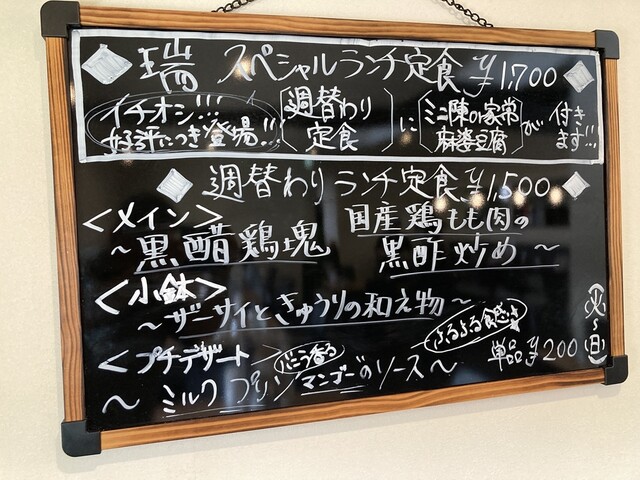 瑞 スペシャルランチ定食 ¥1,700
イチオシ!!! 好評につき登場!! 週替わり定食 に ミニ陳の家常麻婆豆腐 が 付きます!!!
週替わりランチ定食 ¥1,500
<メイン> 国産鶏もも肉の
~黒醋鶏塊 黒酢炒め~
<小鉢>
~ザーサイときゅうりの和え物~
<プチデザート> バニラ香る ぷるぷる食感 単品¥200
~ミルクプリン マンゴーのソース~
(火~日)